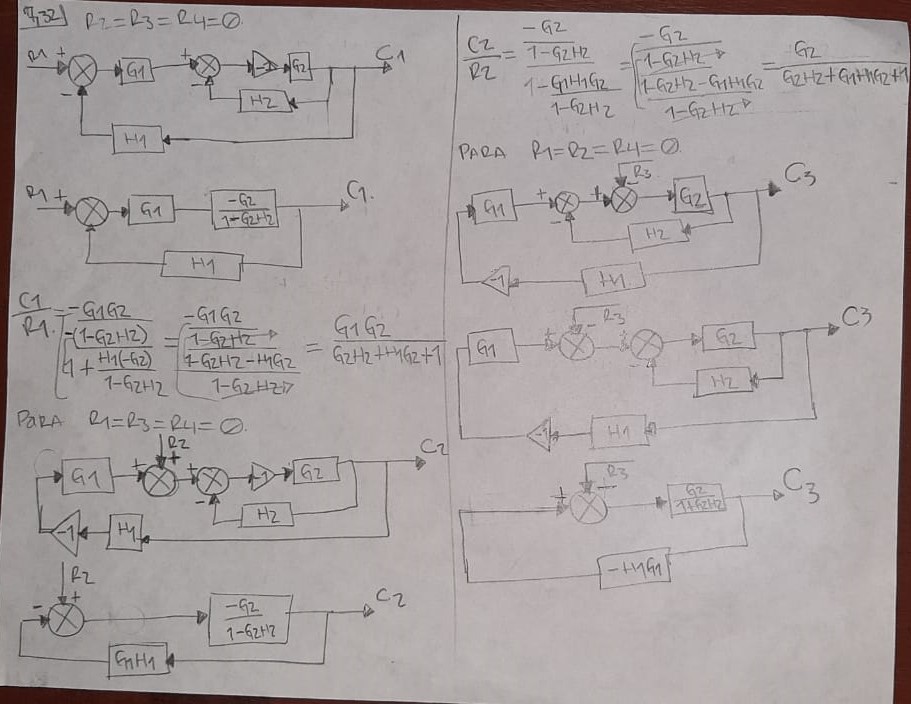 R2=R3=R4=0.
R1 + - G1 + - -1 G2 C1
H2
H1
R1 + G1 -G2/1-G2H2 C1.
H1
C1/R1. = -G1G2/-(1-G2H2) / 1+H1(-G2)/1-G2H2 = -G1G2/1-G2H2 / 1-G2H2-H1G2/1-G2H2 = G1G2/G2H2+H1G2+1
PARA R1=R3=R4=0.
R2
G1 + + + - -1 G2 C2
H2
-1 H1
R2
- + -G2/1-G2H2 C2
G1H1
C2/R2 = -G2/1-G2H2 / 1-G1H1G2/1-G2H2 = -G2/1-G2H2 / 1-G2H2-G1H1G2/1-G2H2 = G2/G2H2+G1H1G2+1
PARA R1=R2=R4=0.
R3
G1 + - + - G2 C3
H2
-1 H1
R3
G1 + - - G2 C3
H2
-1 H1
R3
+ - G2/1+G2H2 C3
-H1G1